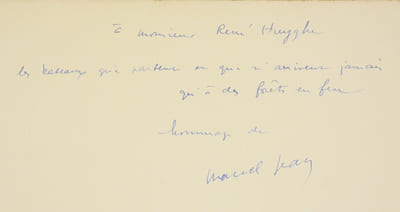 à monsieur René Huyghe
les bateaux qui partent et qui n'arrivent jamais
qu'à des forêts en feu
hommage de
Marcel Jean